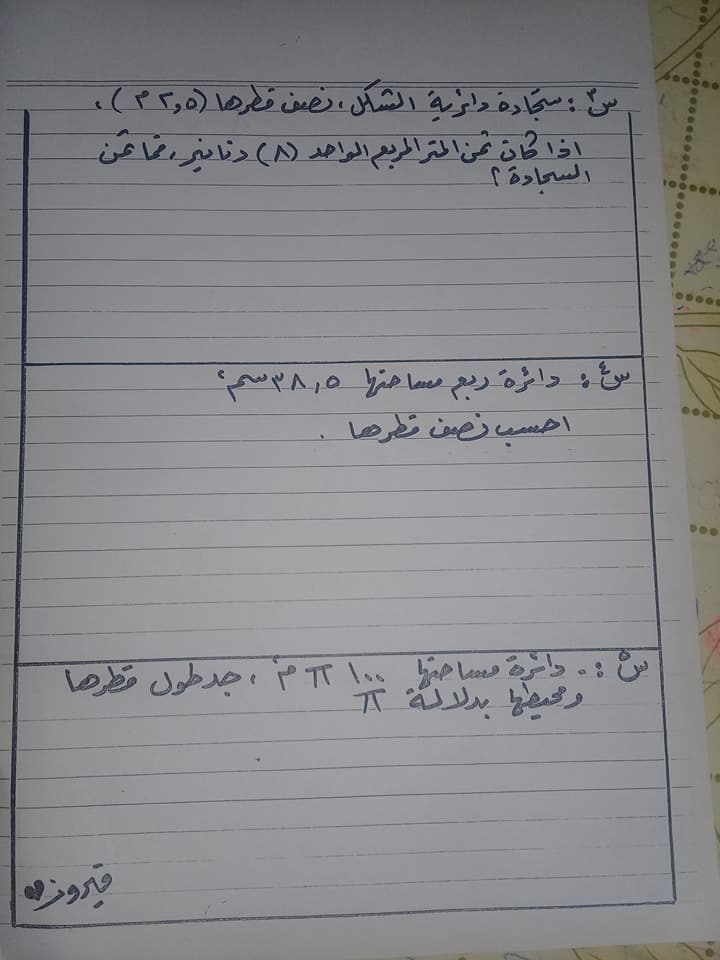 س٣: سجادة دائرية الشكل، نصف قطرها (٢,٥ م)،
اذا كان ثمن المتر المربع الواحد (٨) دنانير، فما ثمن
السجادة؟
س٤: دائرة ربع مساحتها ٣٨,٥ سم٢
احسب نصف قطرها .
س٥: . دائرة مساحتها ١٠٠ π م٢، جد طول قطرها
ومحيطها بدلالة π
فيروز